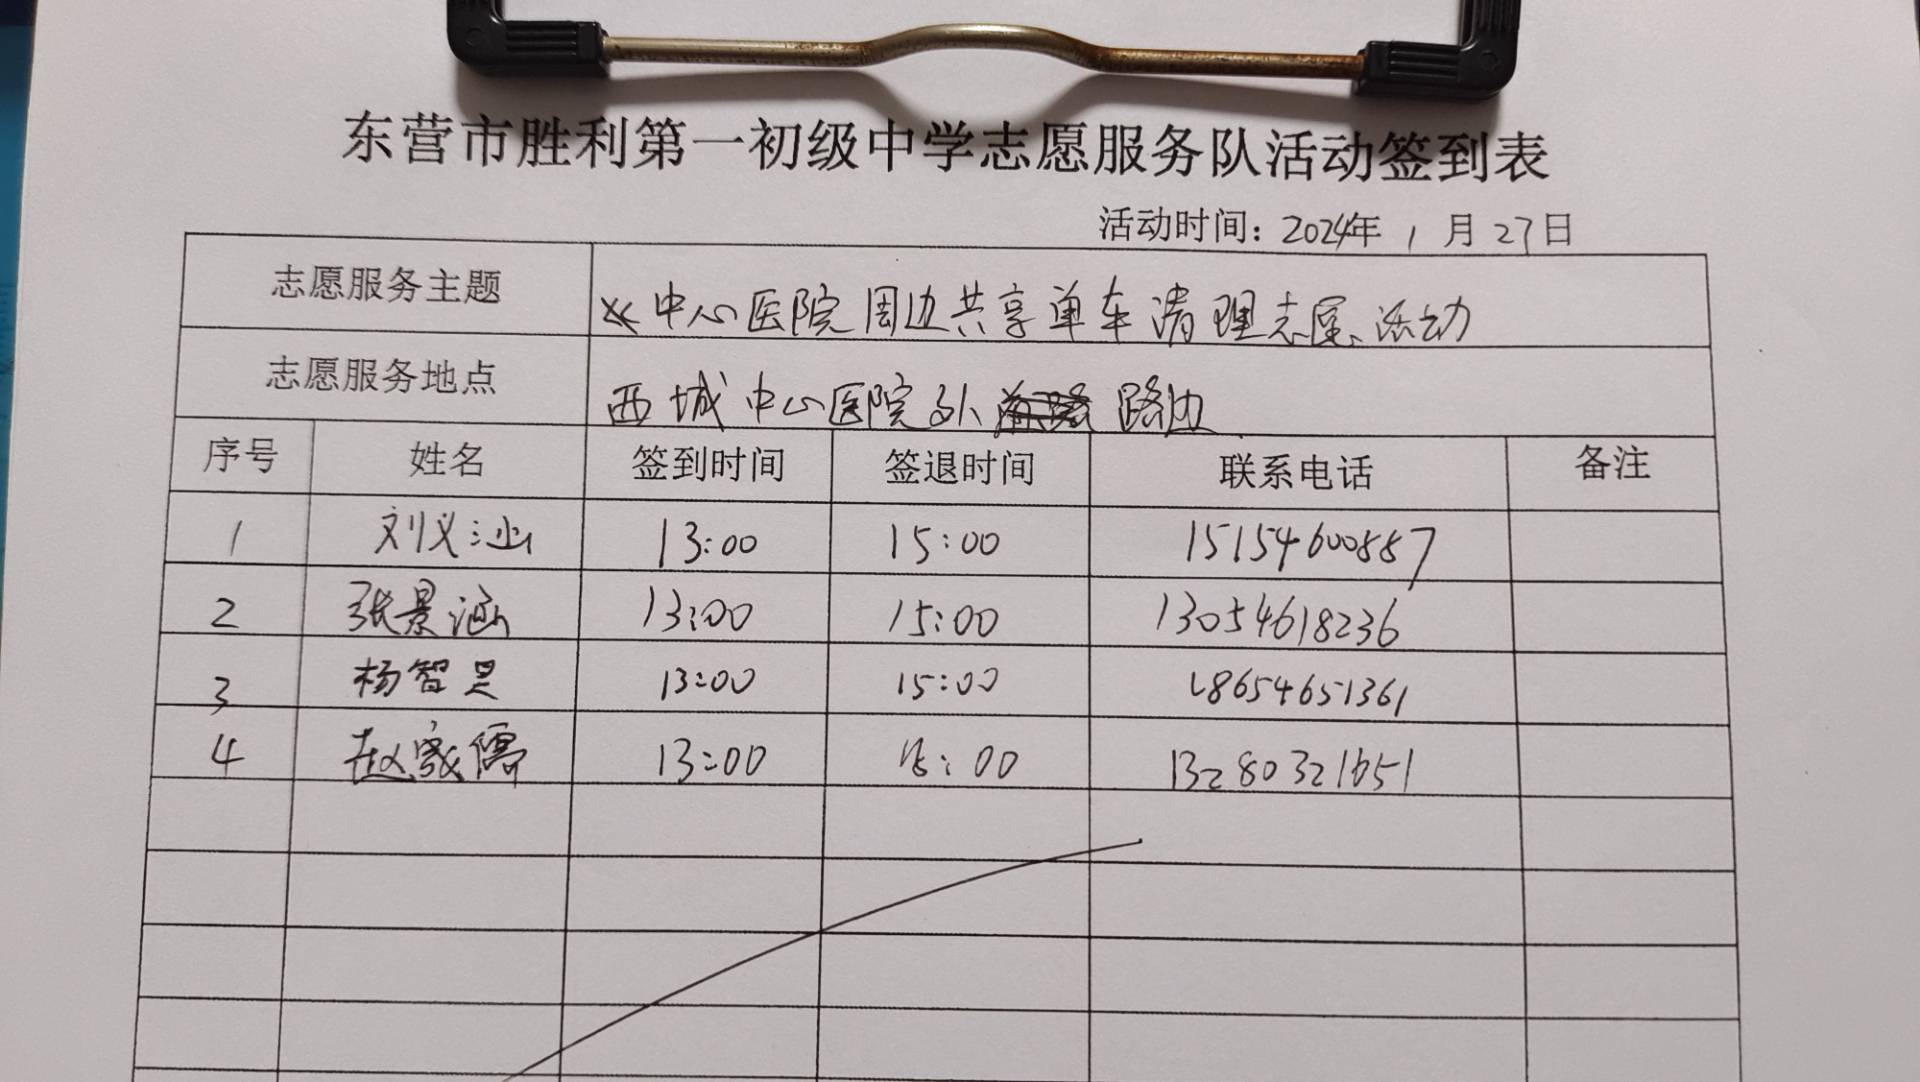 东营市胜利第一初级中学志愿服务队活动签到表
活动时间：2024年 1 月 27日
志愿服务主题 中心医院周边共享单车清理志愿活动
志愿服务地点 西城中心医院外 路边
序号 姓名 签到时间 签退时间 联系电话 备注
1 刘义 13:00 15:00 15154600887
2 张景涵 13:00 15:00 13054618236
3 杨智昊 13:00 15:00 18654651361
4 赵家儒 13:00 15:00 13280321651